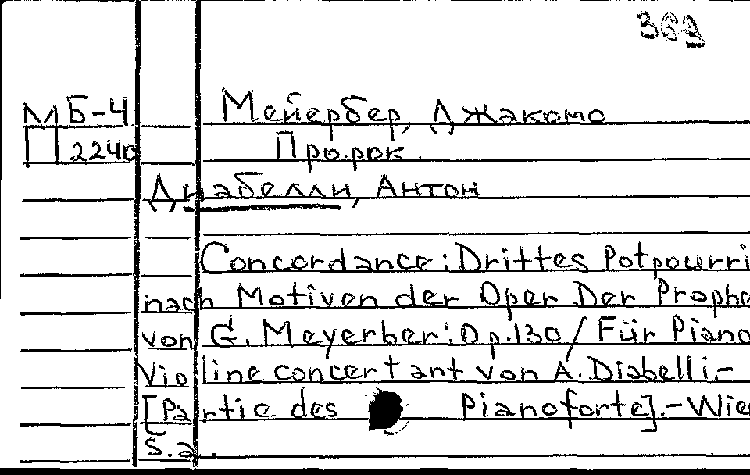 369
М Б-4 Мейербер, Джакомо
П 2240 Пророк.
Диабелли, Антон
Concordance: Drittes Potpourri
nach Motiven der Oper Der Prophe
von G. Meyerber: Op.130 / Für Piano
Violine concertant von A. Diabelli.-
[Partie des Pianoforte].-Wie
S.a.